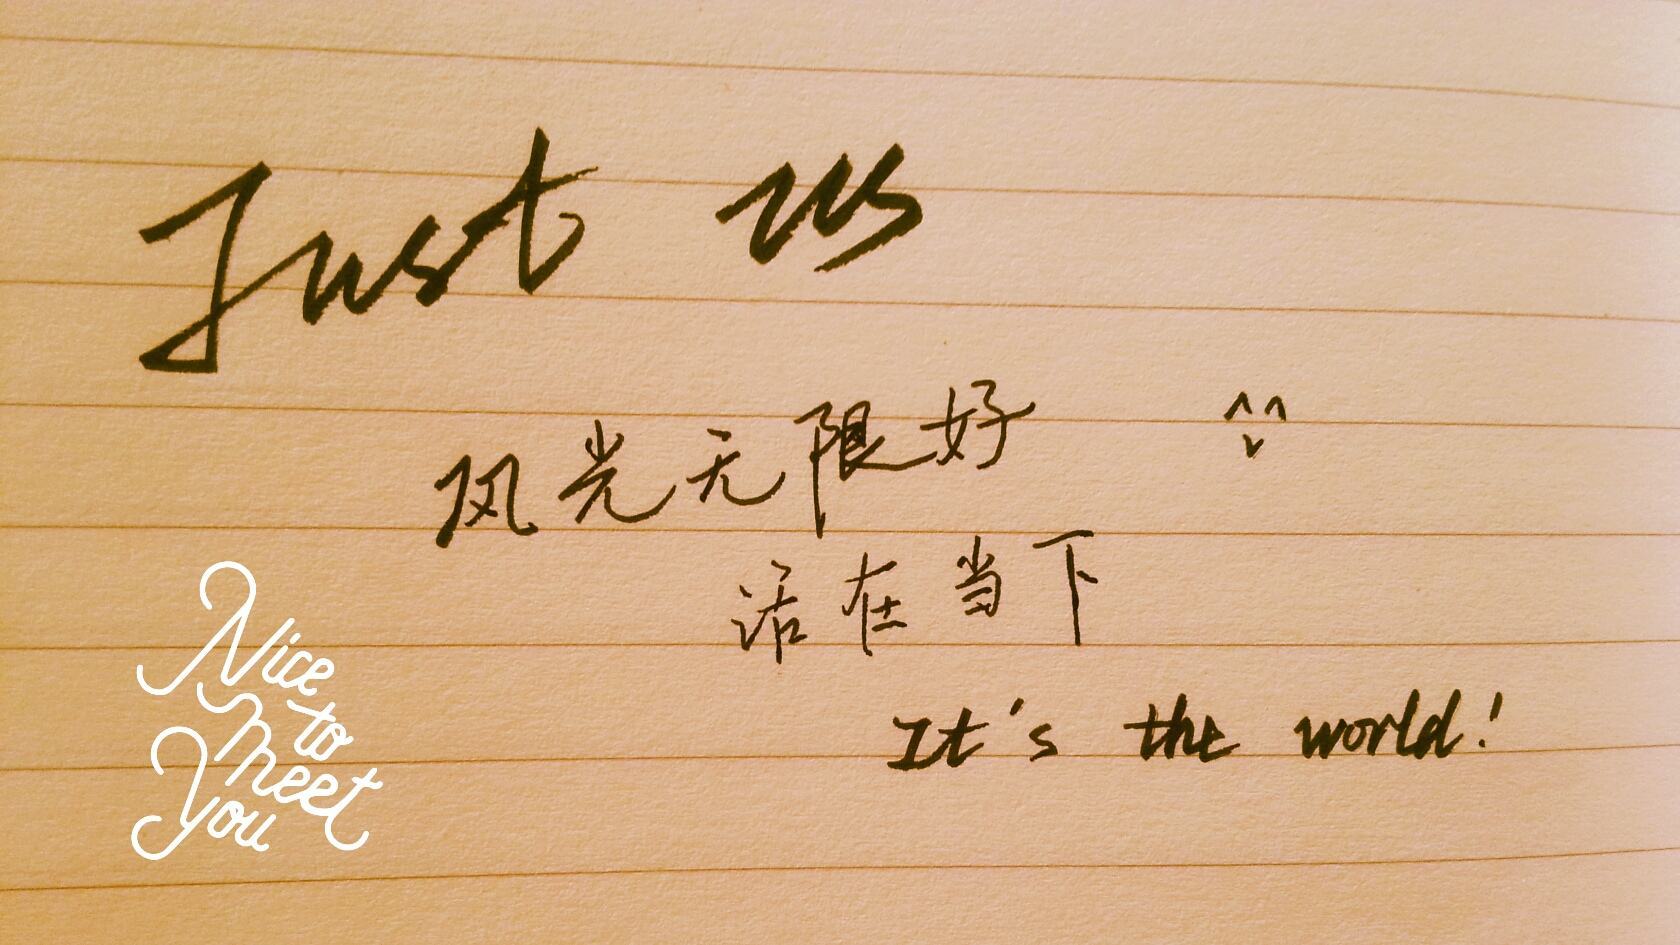 Just us
风光无限好 ^ ^
活在当下
It's the world!
Nice
to
meet
You